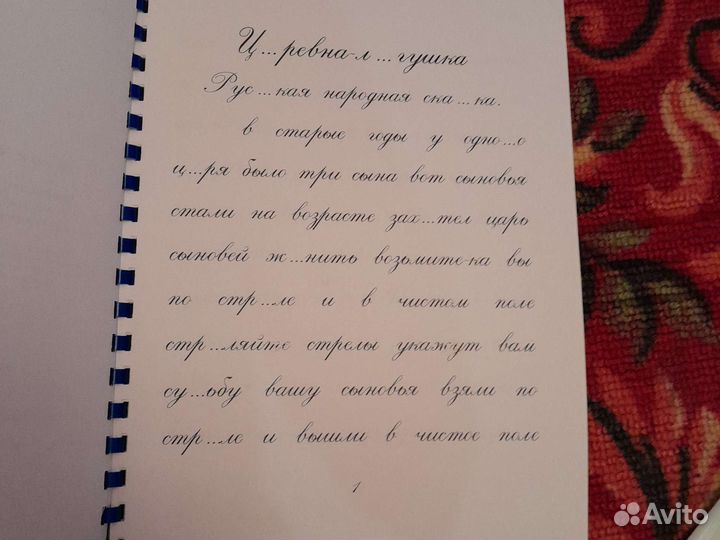 Ц...ревна-л...гушка
Рус...кая народная ска...ка.
в старые годы у одно...о
ц...ря было три сына вот сыновья
стали на возрасте зах...тел царь
сыновей ж...нить возьмите-ка вы
по стр...ле и в чистом поле
стр...ляйте стрелы укажут вам
су...ьбу вашу сыновья взяли по
стр...ле и вышли в чистое поле
1
Avito